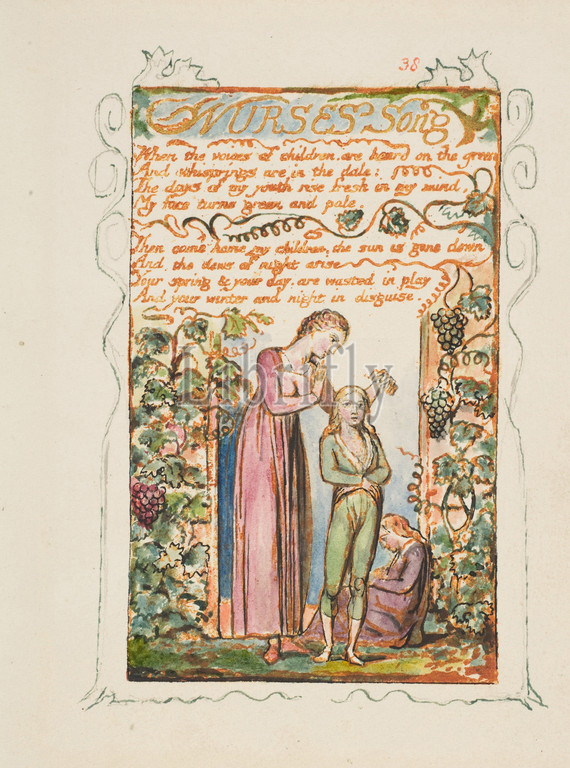 38
NURSES Song
When the voices of children, are heard on the green
And whisprings are in the dale:
The days of my youth rise fresh in my mind,
My face turns green and pale.
Then come home my children, the sun is gone down
And the dews of night arise
Your spring & your day, are wasted in play
And your winter and night in disguise.
Librifly